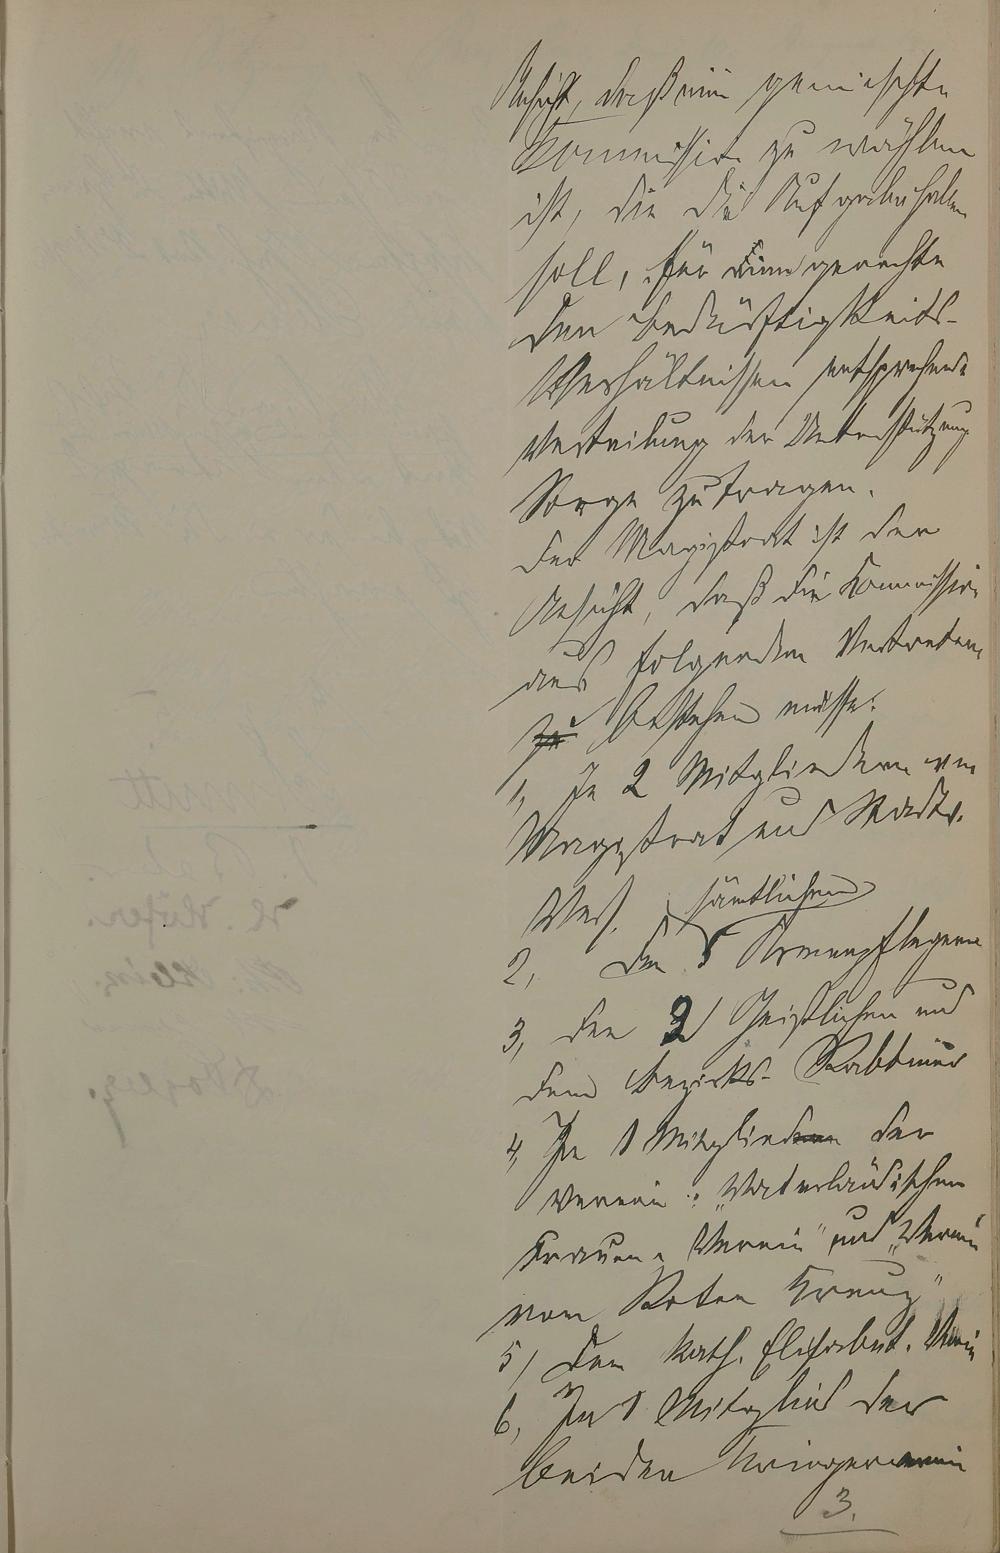 Ansicht, daß eine gemischte
Kommission zu wählen
ist, die die Aufgabe haben
soll, für eine gerechte
den Bedürftigkeits-
Verhältnissen entsprechende
Verteilung der Unterstützung
Sorge zu tragen.
Der Magistrat ist der
Ansicht, daß die Kommission
aus folgenden Vertretern
zu bestehen müsse:
1, Je 2 Mitgliedern von
Magistrat und Stadtv.
Vers.
sämtlichen
2, den 5 Armenpflegern
3, den 2 Geistlichen und
dem Bezirks-Rabbiner
4, Je 1 Mitglied der
Verein: "Vaterländischen
Frauen-Verein" und "Verein
vom Roten Kreuz"
5) Dem kath. Elisabet. Verein
6, Je 1 Mitglied der
beiden Kriegerverein
3.
Schmitt